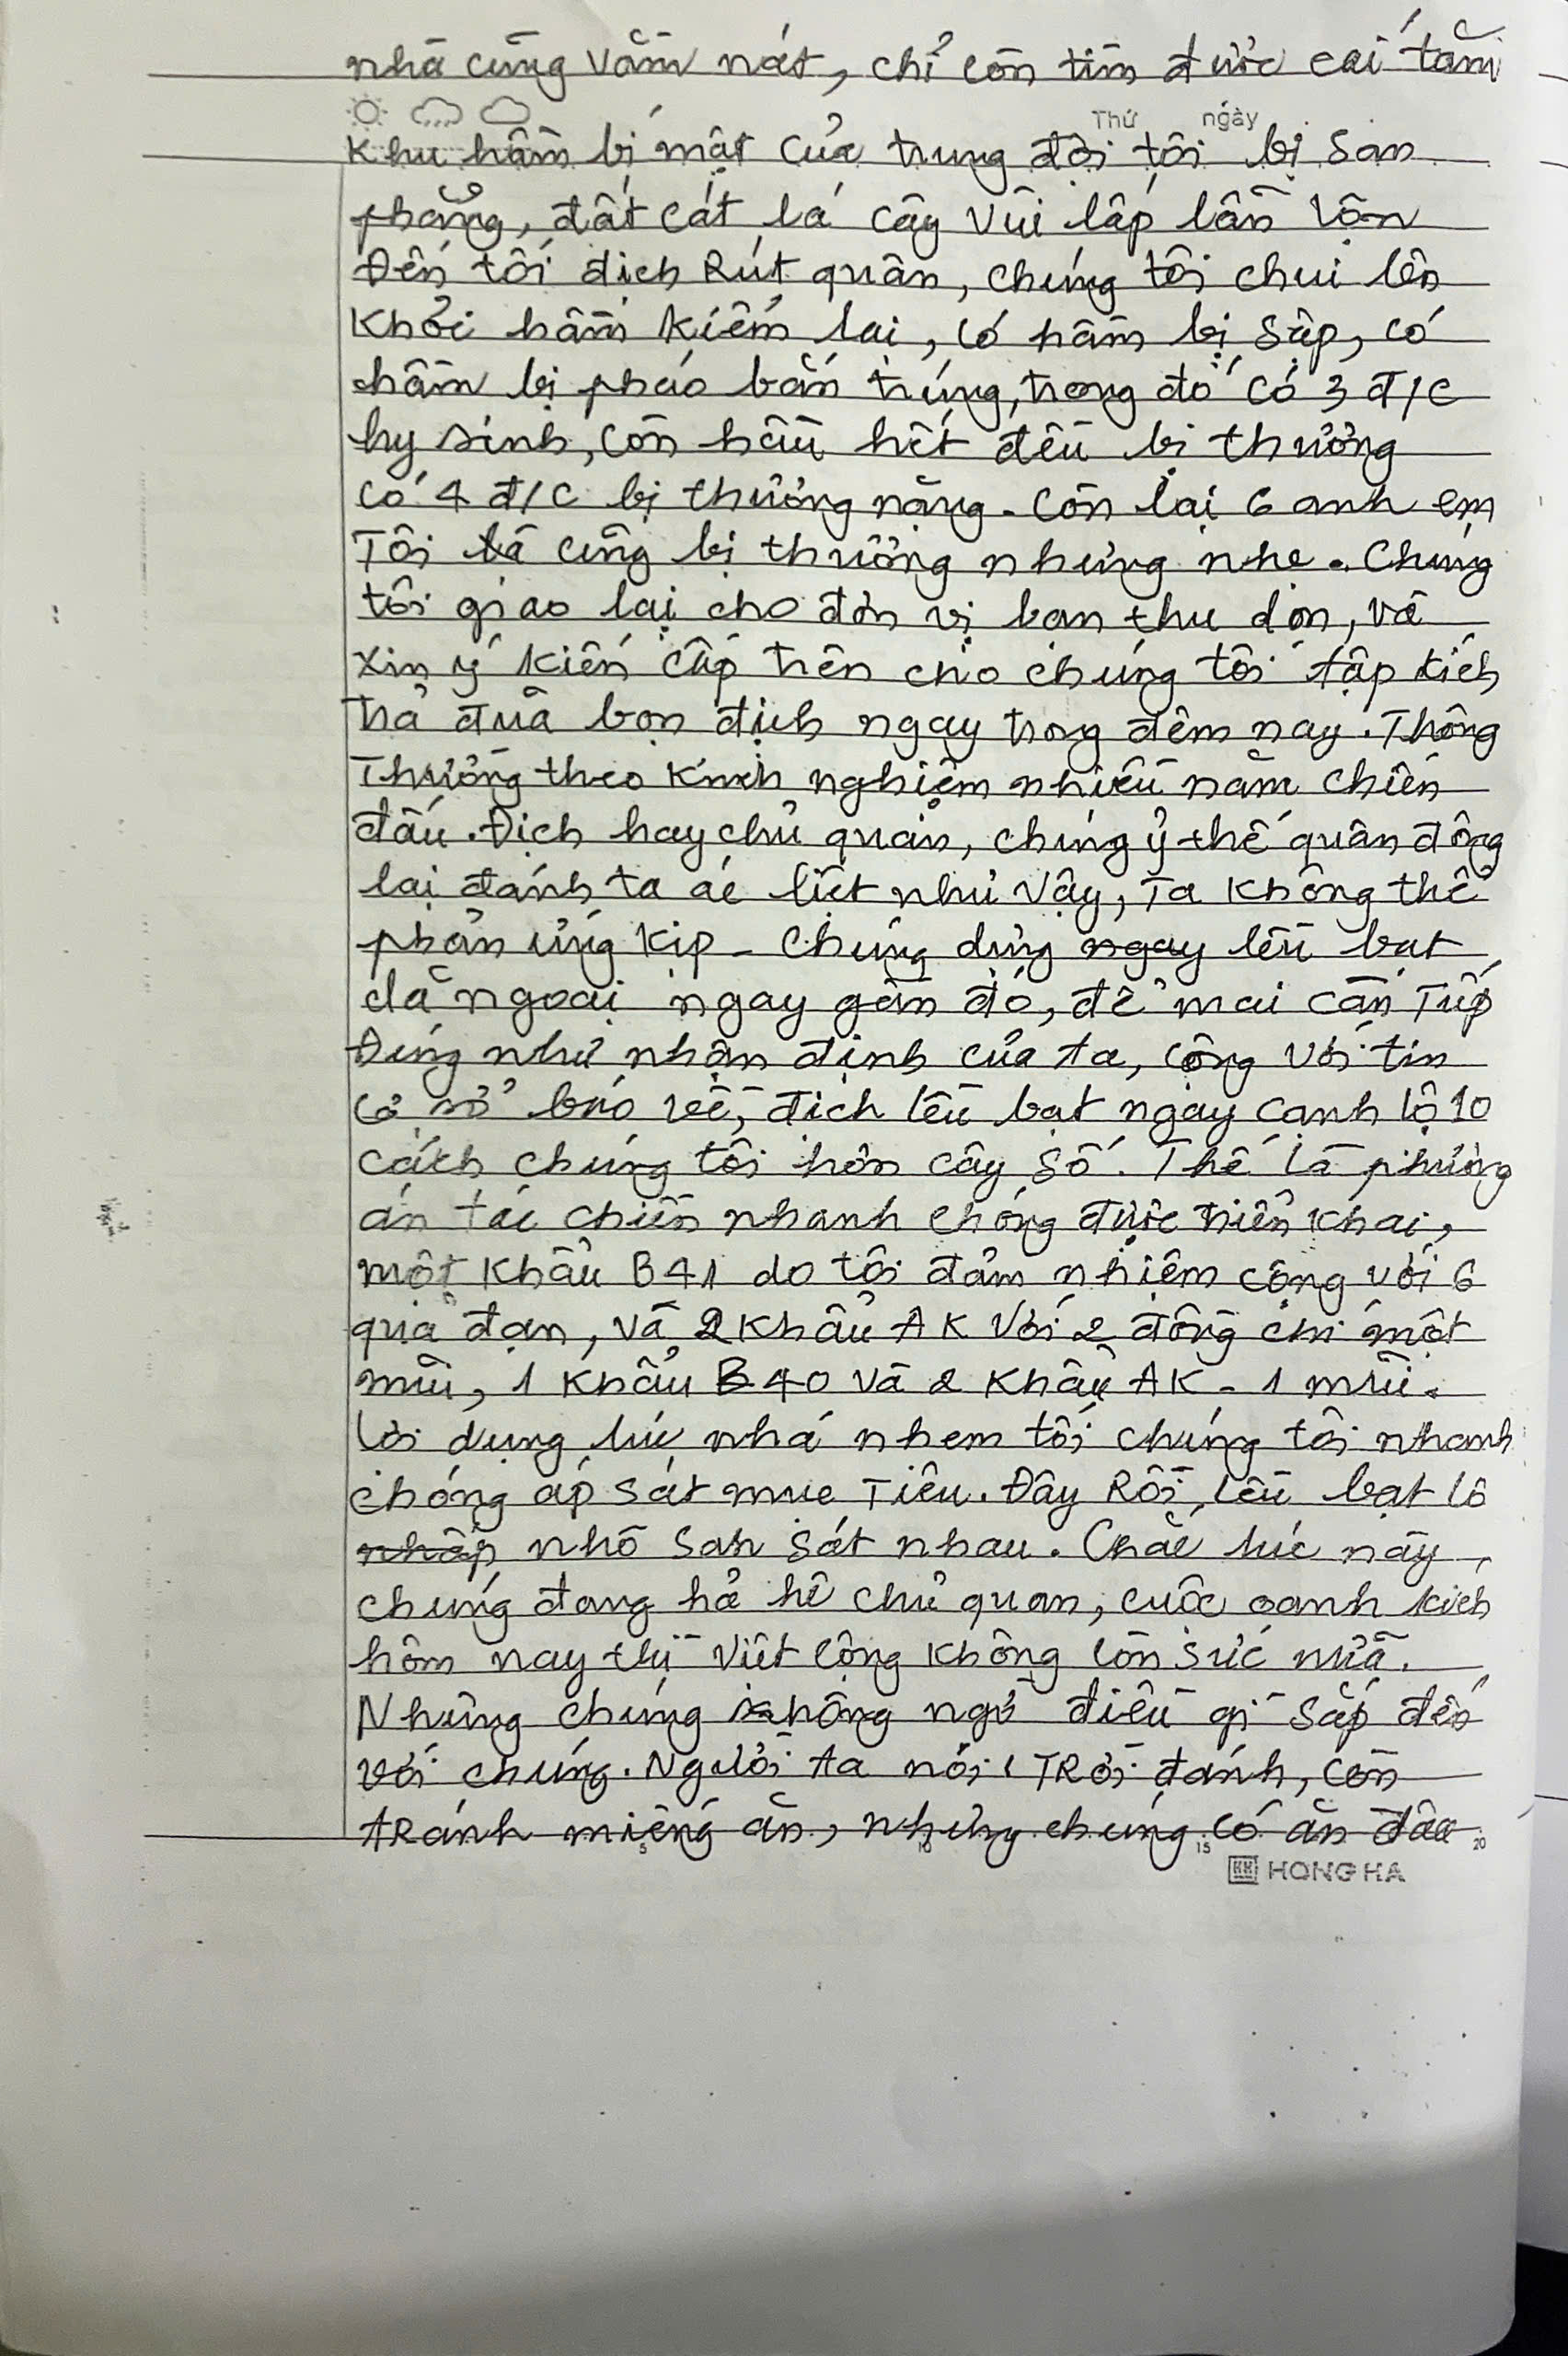 nhà cũng vằm nát, chỉ còn tìm được cái tăm
Thứ ngày
Khu hầm bí mật của trung đội tôi bị san
phẳng, đất cát lá cây vùi lấp lẫn lộn
Đến tối địch Rút quân, chúng tôi chui lên
Khỏi hầm kiểm lại, có hầm bị sập, có
hầm bị pháo bắn trúng, trong đó có 3 đ/c
hy sinh, còn hầu hết đều bị thương
có 4 đ/c bị thương nặng. Còn lại 6 anh em
Tôi cũng bị thương nhưng nhẹ. Chúng
tôi giao lại cho đơn vị bạn thu dọn, và
xin ý kiến cấp trên cho chúng tôi tập kích
trả đũa bọn địch ngay trong đêm nay. Thông
Thường theo kinh nghiệm nhiều năm chiến
đấu. Địch hay chủ quan, chúng ỷ thế quân đông
lại đánh ta ác liệt như vậy, Ta không thể
phản ứng kịp - Chúng dựng ngay lều bạt
dã ngoại ngay gần đó, để mai càn Tiếp
Đúng như nhận định của ta, cộng với tin
cơ sở báo về, địch lều bạt ngay cạnh lộ 10
cách chúng tôi hơn cây số. Thế là phương
án tác chiến nhanh chóng được triển khai,
một khẩu B41 do tôi đảm nhiệm cộng với 6
quả đạn, và 2 khẩu AK Với 2 đồng chí một
mũi, 1 khẩu B40 và 2 khẩu AK - 1 mũi.
Lợi dụng lúc nhá nhem tối chúng tôi nhanh
chóng áp sát mục Tiêu. Đây Rồi, lều bạt lô
nhấp nhô san sát nhau. Chắc lúc này
chúng đang hả hê chủ quan, cuộc oanh kích
hôm nay thì Việt Cộng không còn sức nữa.
Nhưng chúng không ngờ điều gì sắp đến
với chúng. Người ta nói TRời đánh, còn
TRánh miếng ăn, nhưng chúng có ăn đâu
5 10 15 20
HONG HA